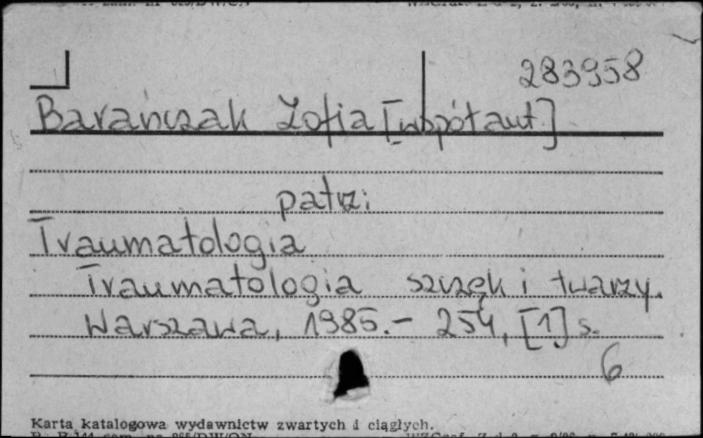 283958
Barańczak Zofia [współaut]
patrz:
Traumatologia
Traumatologia szczęk i twarzy.
Warszawa, 1985.- 254, [1] s.
6
Karta katalogowa wydawnictw zwartych i ciągłych.